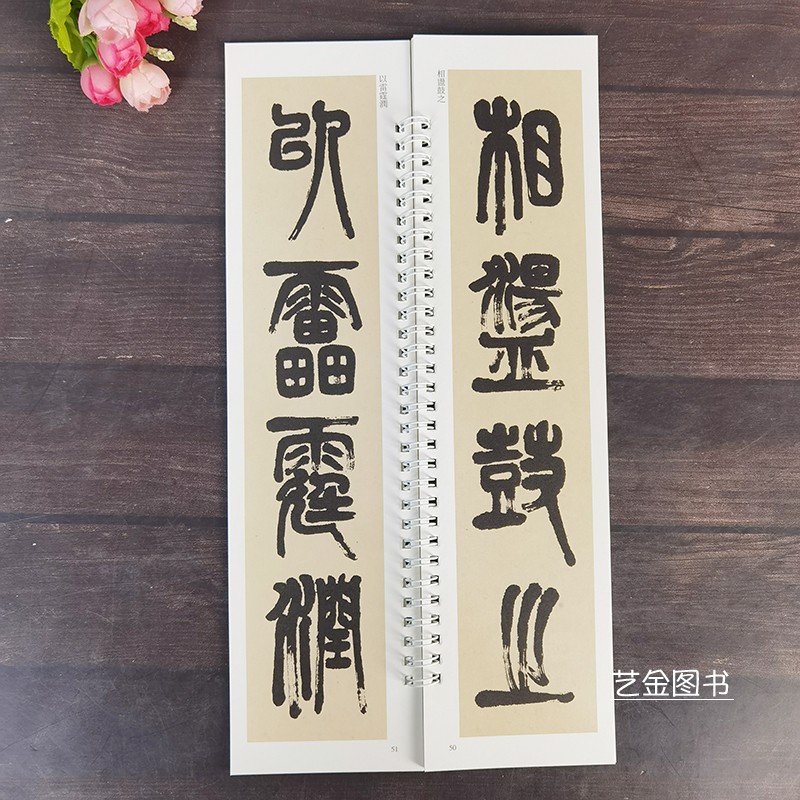 相盪鼓之
相盪鼓之
50
以雷霆潤
以雷霆潤
51
艺金图书